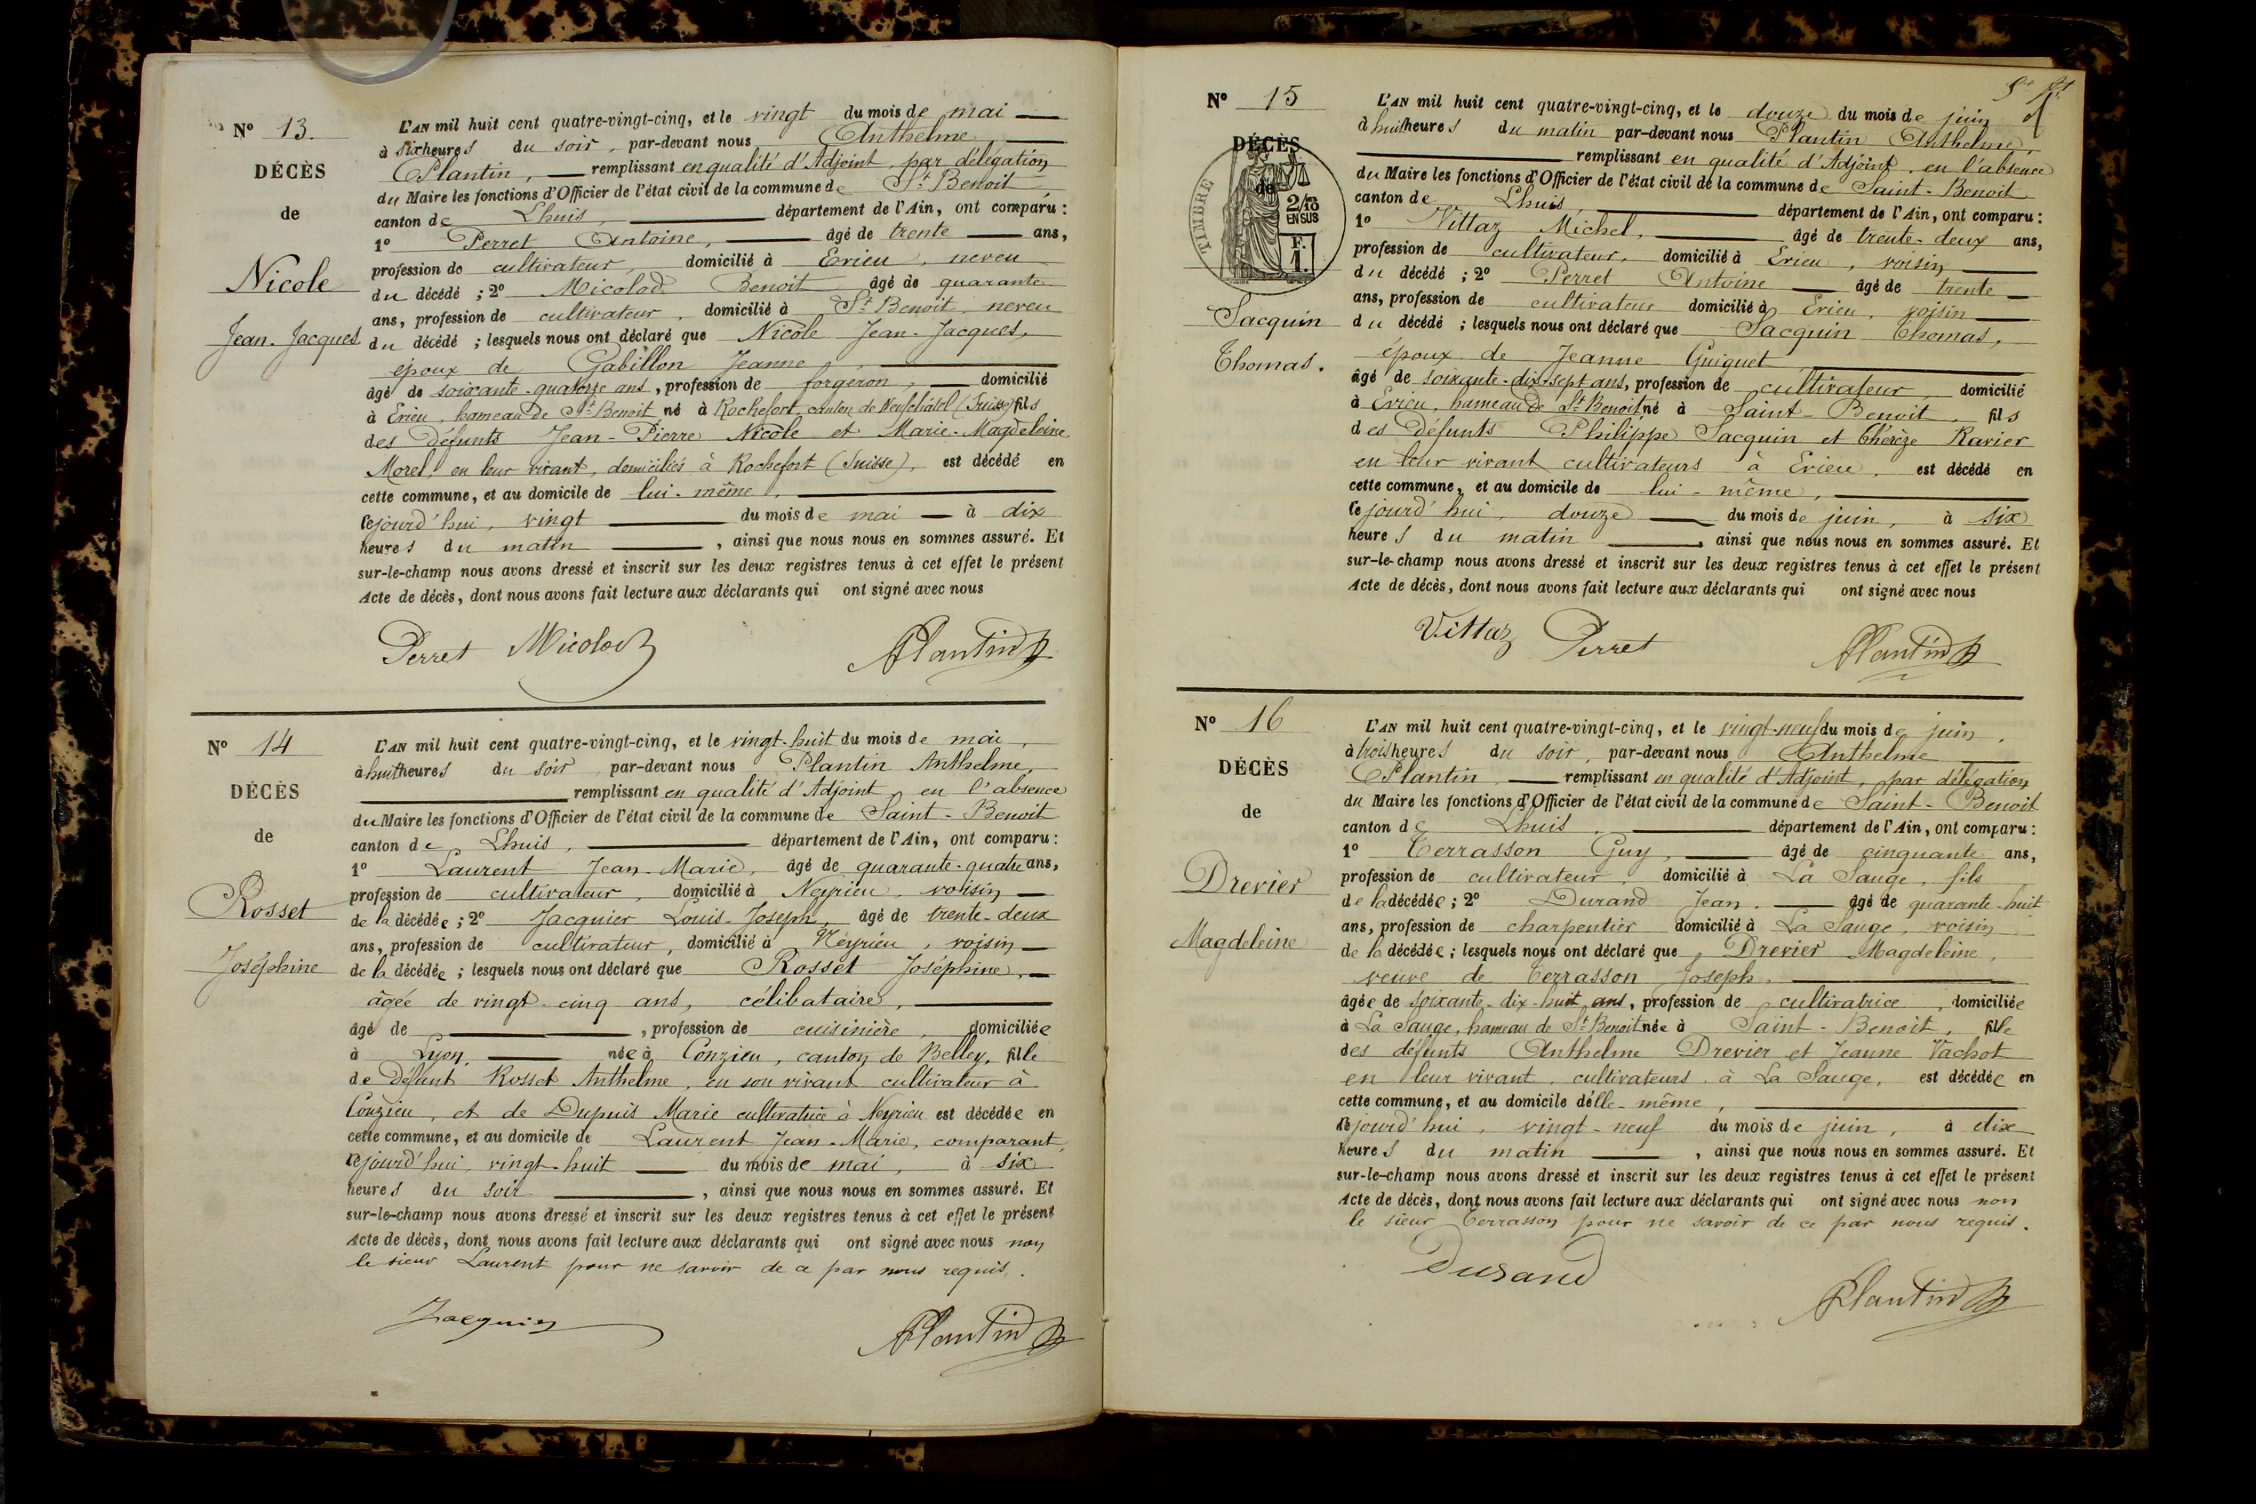 Nº 13.
DÉCÈS
de
Nicole
Jean-Jacques
L'AN mil huit cent quatre-vingt-cinq, et le vingt du mois de mai
à six heures du soir, par-devant nous Anthelme
Plantin, remplissant en qualité d'Adjoint, par délégation
du Maire les fonctions d'Officier de l'état civil de la commune de St Benoit
canton de Lhuis département de l'Ain, ont comparu :
1º Perret Antoine, âgé de trente ans,
profession de cultivateur, domicilié à Erieu, neveu
du décédé ; 2º Micolod Benoit âgé de quarante
ans, profession de cultivateur, domicilié à St Benoit, neveu
du décédé ; lesquels nous ont déclaré que Nicole Jean-Jacques,
époux de Gabillon Jeanne,
âgé de soixante-quatorze ans, profession de forgeron, domicilié
à Erieu, hameau de St Benoit né à Rochefort, canton de Neufchâtel (Suisse) fils
des défunts Jean-Pierre Nicole et Marie-Magdeleine
Morel, en leur vivant, domiciliés à Rochefort (Suisse), est décédé en
cette commune, et au domicile de lui-même,
cejourd'hui, vingt du mois de mai à dix
heures du matin, ainsi que nous nous en sommes assuré. Et
sur-le-champ nous avons dressé et inscrit sur les deux registres tenus à cet effet le présent
Acte de décès, dont nous avons fait lecture aux déclarants qui ont signé avec nous
Perret Micolod APlantin
Nº 14
DÉCÈS
de
Rosset
Joséphine
L'AN mil huit cent quatre-vingt-cinq, et le vingt-huit du mois de mai,
à huit heures du soir par-devant nous Plantin Anthelme,
remplissant en qualité d'Adjoint en l'absence
du Maire les fonctions d'Officier de l'état civil de la commune de Saint-Benoit
canton de Lhuis, département de l'Ain, ont comparu :
1º Laurent Jean-Marie, âgé de quarante-quatre ans,
profession de cultivateur, domicilié à Neyrieu, voisin
de la décédée ; 2º Jacquier Louis-Joseph, âgé de trente-deux
ans, profession de cultivateur, domicilié à Néyrieu, voisin
de la décédée ; lesquels nous ont déclaré que Rosset Joséphine,
âgée de vingt-cinq ans, célibataire,
âgé de , profession de cuisinière, domiciliée
à Lyon, née à Conzieu, canton de Belley, fille
de défunt Rosset Anthelme, en son vivant cultivateur à
Conzieu, et de Dupuis Marie cultivatrice à Neyrieu est décédée en
cette commune, et au domicile de Laurent Jean-Marie, comparant,
cejourd'hui, vingt-huit du mois de mai, à six
heures du soir, ainsi que nous nous en sommes assuré. Et
sur-le-champ nous avons dressé et inscrit sur les deux registres tenus à cet effet le présent
Acte de décès, dont nous avons fait lecture aux déclarants qui ont signé avec nous non
le sieur Laurent pour ne savoir de ce par nous requis.
Jacquier APlantin
Nº 15
DÉCÈS
de
TIMBRE
2/10
EN SUS
F.
1.
Jacquin
Thomas.
L'AN mil huit cent quatre-vingt-cinq, et le douze du mois de juin
à huit heures du matin par-devant nous Plantin Anthelme,
remplissant en qualité d'Adjoint, en l'absence
du Maire les fonctions d'Officier de l'état civil de la commune de Saint-Benoit
canton de Lhuis, département de l'Ain, ont comparu :
1º Vittaz Michel, âgé de trente-deux ans,
profession de cultivateur, domicilié à Erieu, voisin
du décédé ; 2º Perret Antoine âgé de trente
ans, profession de cultivateur domicilié à Erieu, voisin
du décédé ; lesquels nous ont déclaré que Jacquin Thomas,
époux de Jeanne Guiguet
âgé de soixante-dix-sept ans, profession de cultivateur, domicilié
à Erieu, hameau de St Benoit né à Saint-Benoit, fils
des défunts Philippe Jacquin et Thérèze Ravier
en leur vivant cultivateurs à Erieu. est décédé en
cette commune, et au domicile de lui-même,
cejourd'hui, douze du mois de juin, à six
heures du matin, ainsi que nous nous en sommes assuré. Et
sur-le-champ nous avons dressé et inscrit sur les deux registres tenus à cet effet le présent
Acte de décès, dont nous avons fait lecture aux déclarants qui ont signé avec nous
Vittaz Perret APlantin
Nº 16
DÉCÈS
de
Drevier
Magdeleine
L'AN mil huit cent quatre-vingt-cinq, et le vingt-neuf du mois de juin,
à trois heures du soir, par-devant nous Anthelme
Plantin, remplissant en qualité d'Adjoint, par délégation
du Maire les fonctions d'Officier de l'état civil de la commune de Saint-Benoit
canton de Lhuis, département de l'Ain, ont comparu :
1º Terrasson Guy, âgé de cinquante ans,
profession de cultivateur, domicilié à La Sauge, fils
de la décédée ; 2º Durand Jean, âgé de quarante-huit
ans, profession de charpentier domicilié à La Sauge, voisin
de la décédée ; lesquels nous ont déclaré que Drevier Magdeleine,
veuve de Terrasson Joseph,
âgée de soixante-dix-huit ans, profession de cultivatrice, domiciliée
à La Sauge, hameau de St Benoit née à Saint-Benoit, fille
des défunts Anthelme Drevier et Jeanne Vachot
en leur vivant, cultivateurs à La Sauge, est décédée en
cette commune, et au domicile d'elle-même,
cejourd'hui, vingt-neuf du mois de juin, à dix
heures du matin, ainsi que nous nous en sommes assuré. Et
sur-le-champ nous avons dressé et inscrit sur les deux registres tenus à cet effet le présent
Acte de décès, dont nous avons fait lecture aux déclarants qui ont signé avec nous non
le sieur Terrasson pour ne savoir de ce par nous requis.
Durand APlantin